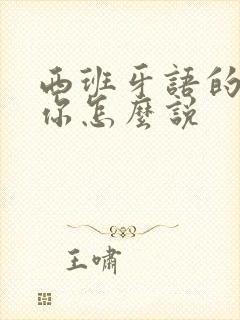 西班牙語的
你怎麼說
王嘯